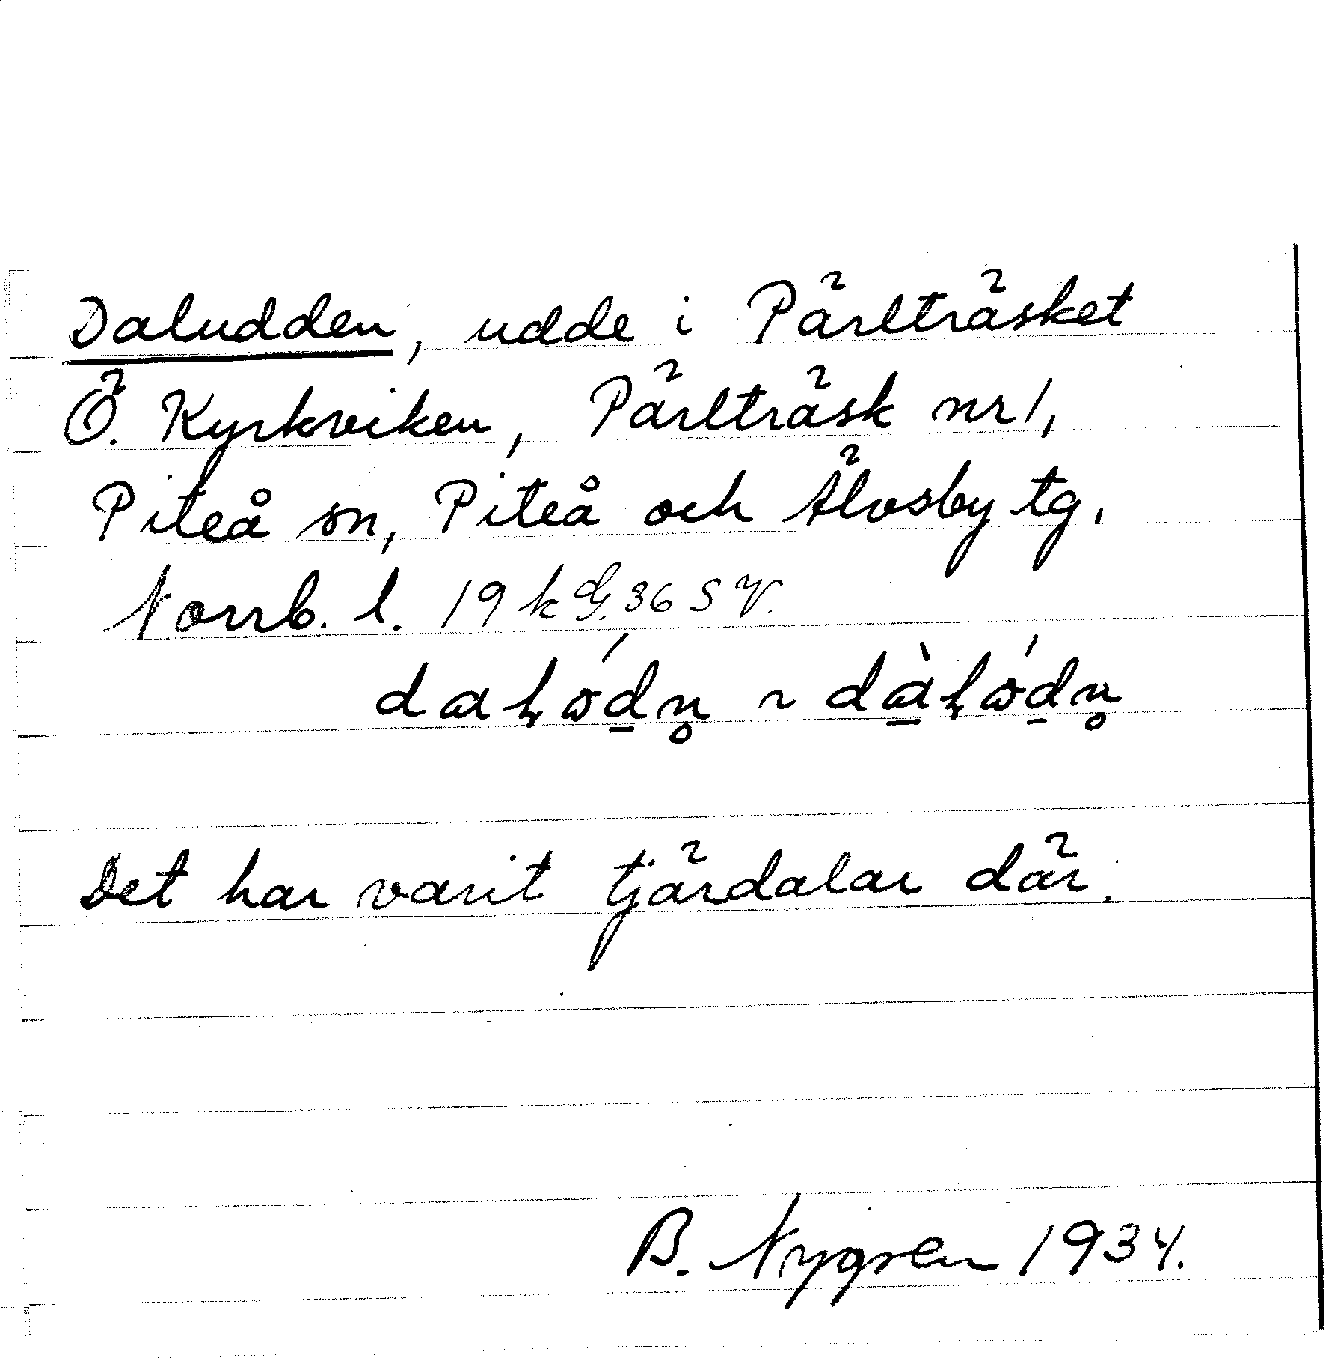 Daludden, udde i Pärlträsket
Ö. Kyrkviken, Pärlträsk nr 1,
Piteå sn, Piteå och Älvsby tg.
Norrb. l. 19 k G. 36 S V.
Det har varit tjärdalar där.
B. Nygren 1934.